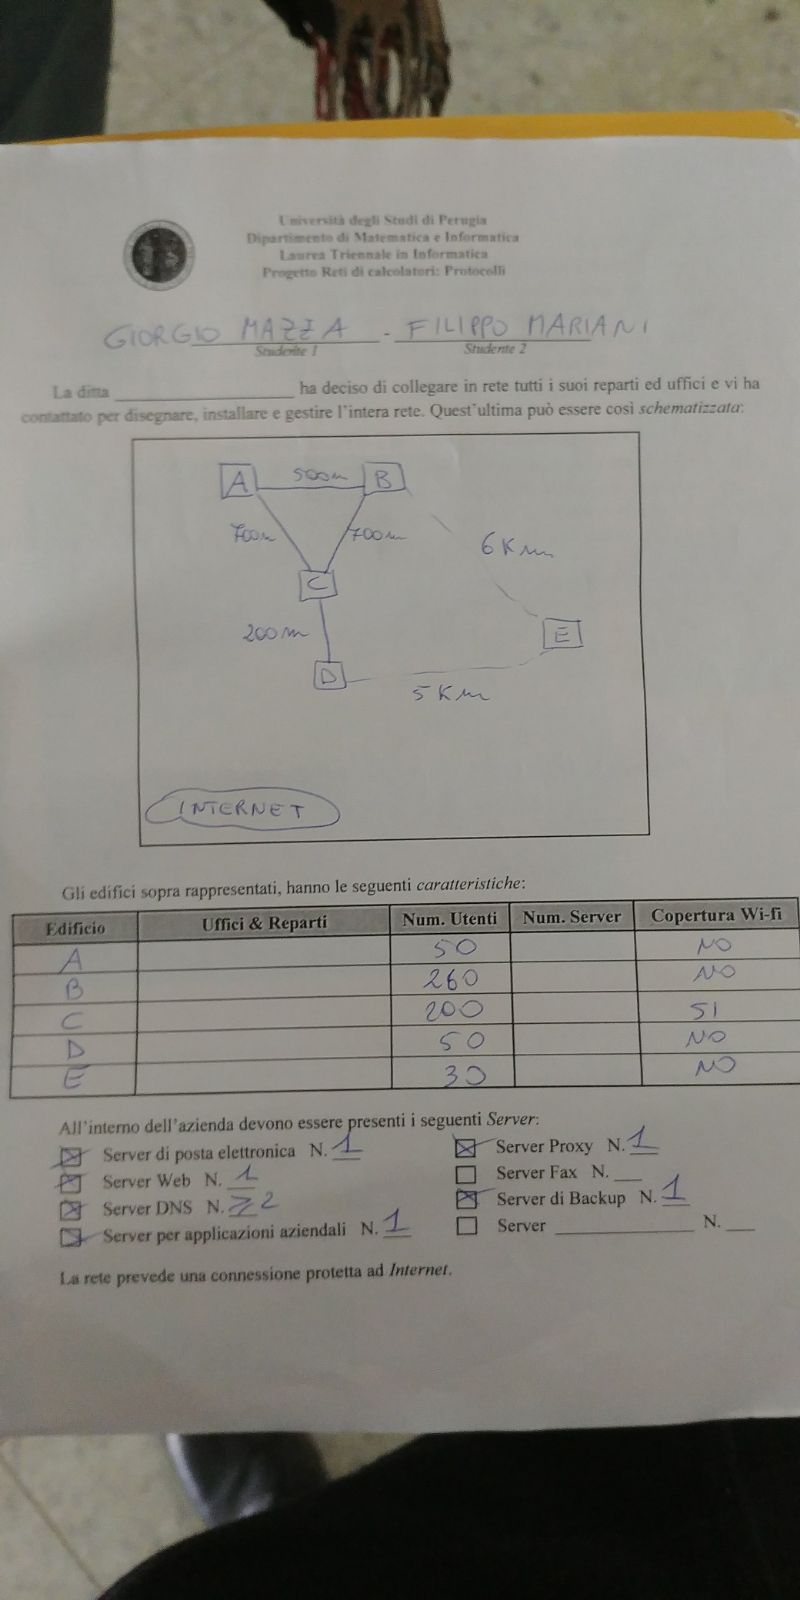 Università degli Studi di Perugia
Dipartimento di Matematica e Informatica
Laurea Triennale in Informatica
Progetto Reti di calcolatori: Protocolli
GIORGIO MAZZA - FILIPPO MARIANI
Studente 1 Studente 2
La ditta ____________________ ha deciso di collegare in rete tutti i suoi reparti ed uffici e vi ha
contattato per disegnare, installare e gestire l'intera rete. Quest'ultima può essere così schematizzata:
A 500m B
700m 700m 6 Km
C
200m E
D 5 Km
INTERNET
Gli edifici sopra rappresentati, hanno le seguenti caratteristiche:
Edificio Uffici & Reparti Num. Utenti Num. Server Copertura Wi-fi
A 50 NO
B 260 NO
C 200 SI
D 50 NO
E 30 NO
All'interno dell'azienda devono essere presenti i seguenti Server:
Server di posta elettronica N. 1 Server Proxy N. 1
Server Web N. 1 Server Fax N. ___
Server DNS N. ≥2 Server di Backup N. 1
Server per applicazioni aziendali N. 1 Server _______________ N. ___
La rete prevede una connessione protetta ad Internet.